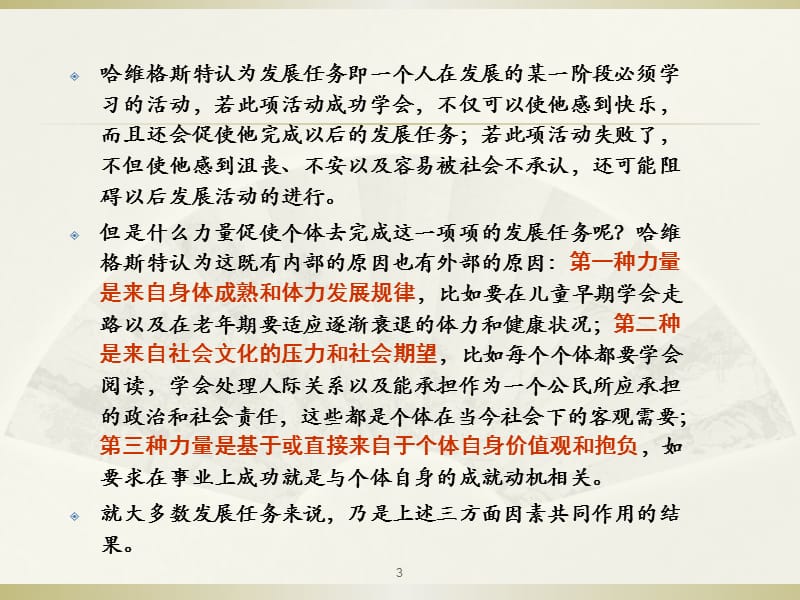 哈维格斯特认为发展任务即一个人在发展的某一阶段必须学
习的活动，若此项活动成功学会，不仅可以使他感到快乐，
而且还会促使他完成以后的发展任务；若此项活动失败了，
不但使他感到沮丧、不安以及容易被社会不承认，还可能阻
碍以后发展活动的进行。
但是什么力量促使个体去完成这一项项的发展任务呢？哈维
格斯特认为这既有内部的原因也有外部的原因：第一种力量
是来自身体成熟和体力发展规律，比如要在儿童早期学会走
路以及在老年期要适应逐渐衰退的体力和健康状况；第二种
是来自社会文化的压力和社会期望，比如每个个体都要学会
阅读，学会处理人际关系以及能承担作为一个公民所应承担
的政治和社会责任，这些都是个体在当今社会下的客观需要；
第三种力量是基于或直接来自于个体自身价值观和抱负，如
要求在事业上成功就是与个体自身的成就动机相关。
就大多数发展任务来说，乃是上述三方面因素共同作用的结
果。
3